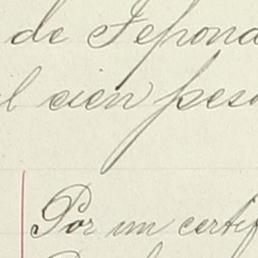 de Fepona
cien peso
Por un certif